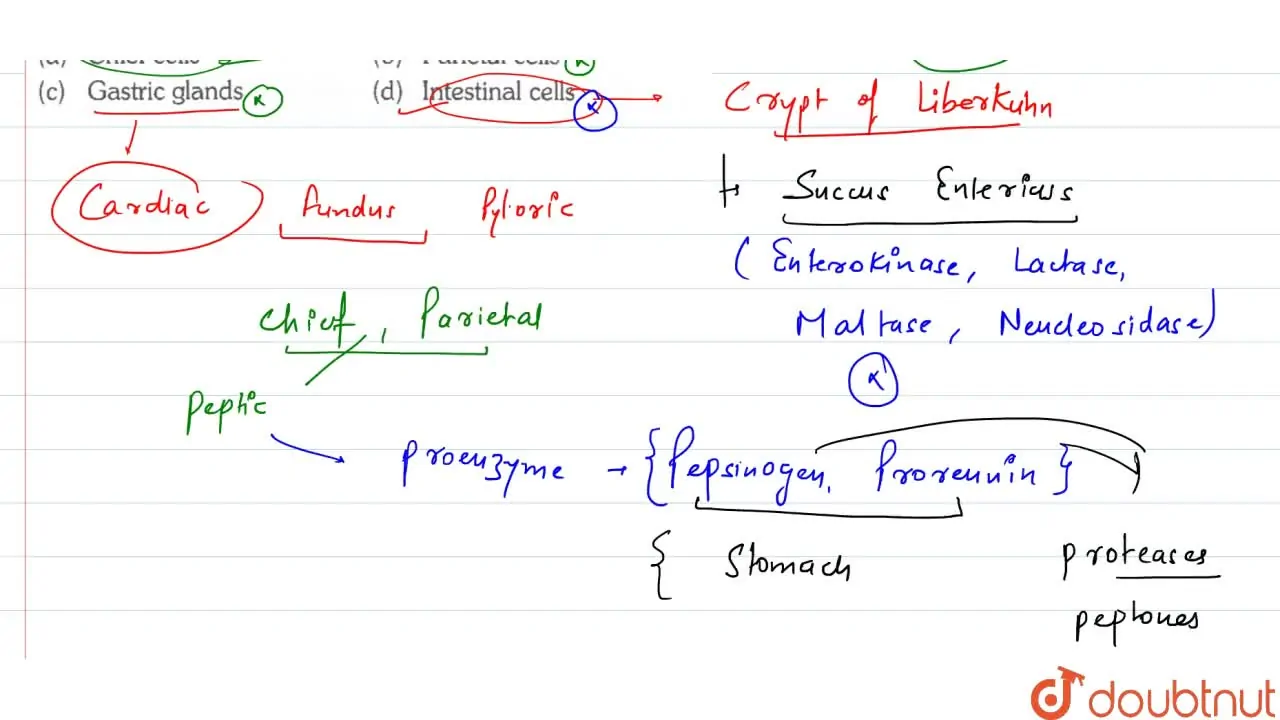 (a) Chief cells (b) Parietal cells
(c) Gastric glands (d) Intestinal cells
Crypt of Liberkuhn
Cardiac Fundus Pyloric
Succus Entericus
(Enterokinase, Lactase,
Maltase, Neucleosidase)
Chief, Parietal
Peptic
Proenzyme → {Pepsinogen, Prorennin}
{ Stomach
Proteases
peptones
doubtnut